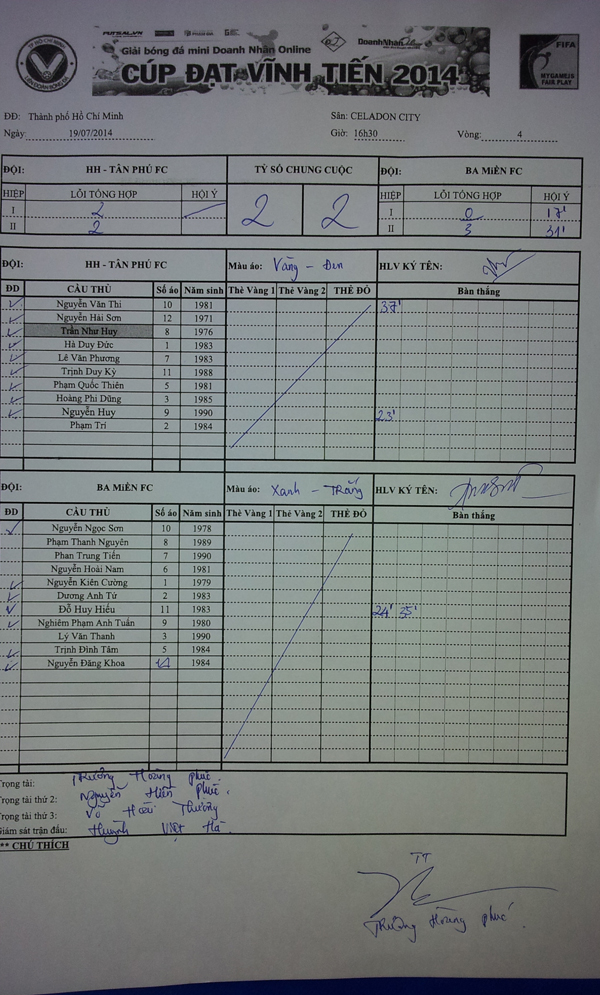 FUTSAL.VN
TP HỒ CHÍ MINH
LIÊN ĐOÀN BÓNG ĐÁ
Giải bóng đá mini Doanh Nhân Online
DoanhNhan
CÚP ĐẠT VĨNH TIẾN 2014
FIFA
MY GAME IS
FAIR PLAY
ĐĐ: Thành phố Hồ Chí Minh Sân: CELADON CITY
Ngày: 19/07/2014 Giờ: 16h30 Vòng: 4
ĐỘI: HH - TÂN PHÚ FC TỶ SỐ CHUNG CUỘC ĐỘI: BA MIỀN FC
HIỆP LỖI TỔNG HỢP HỘI Ý 2 2 HIỆP LỖI TỔNG HỢP HỘI Ý
I 2 I 0 17'
II 2 II 3 31'
ĐỘI: HH - TÂN PHÚ FC Màu áo: Vàng - Đen HLV KÝ TÊN:
ĐD CẦU THỦ Số áo Năm sinh Thẻ Vàng 1 Thẻ Vàng 2 THẺ ĐỎ Bàn thắng
Nguyễn Văn Thi 10 1981 37'
Nguyễn Hải Sơn 12 1971
Trần Như Huy 8 1976
Hà Duy Đức 1 1983
Lê Văn Phương 7 1983
Trịnh Duy Kỳ 11 1988
Phạm Quốc Thiên 5 1981
Hoàng Phi Dũng 3 1985
Nguyễn Huy 9 1990 23'
Phạm Trí 2 1984
ĐỘI: BA MIỀN FC Màu áo: Xanh - Trắng HLV KÝ TÊN:
ĐD CẦU THỦ Số áo Năm sinh Thẻ Vàng 1 Thẻ Vàng 2 THẺ ĐỎ Bàn thắng
Nguyễn Ngọc Sơn 10 1978
Phạm Thanh Nguyên 8 1989
Phan Trung Tiến 7 1990
Nguyễn Hoài Nam 6 1981
Nguyễn Kiên Cường 1 1979
Dương Anh Tứ 2 1983
Đỗ Huy Hiếu 11 1983 24' 35'
Nghiêm Phạm Anh Tuấn 9 1980
Lý Văn Thanh 3 1990
Trịnh Đình Tâm 5 1984
Nguyễn Đăng Khoa 1984
rọng tài: Trương Hoàng Phúc.
rọng tài thứ 2: Nguyễn Hiền Phúc.
rọng tài thứ 3: Võ Hoài Thương
Giám sát trận đấu: Huỳnh Việt Hà.
** CHÚ THÍCH
TT
Trương Hoàng Phúc.